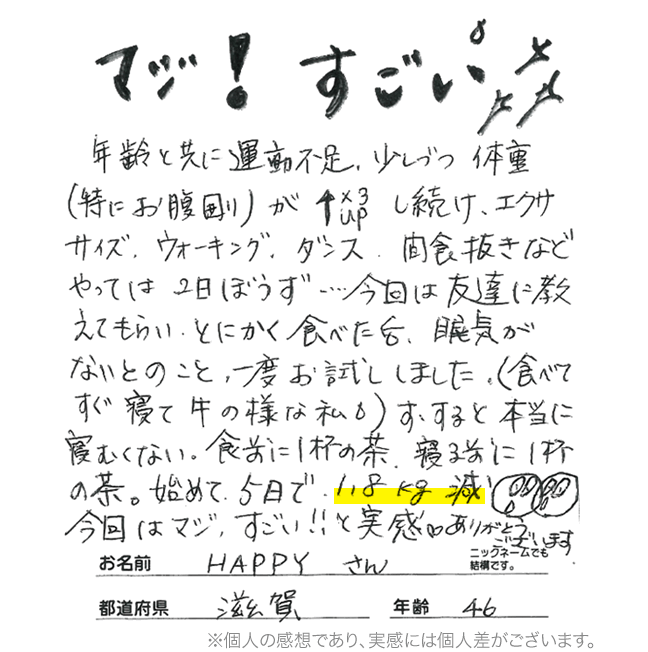 マジ！すごい
年齢と共に運動不足、少しづつ体重
(特にお腹剛り)が↑×3 UPし続け、エクサ
サイズ、ウォーキング、ダンス、間食抜きなど
やっては2日ぼうず…今回は友達に教
えてもらい、とにかく食べた后、眠気が
ないとのこと、一度お試ししました。(食べて
すぐ寝て牛の様な私) すると本当に
寝むくない。食前に1杯の茶、寝る前に1杯
の茶。始めて、5日で、1.8kg減
今回はマジ、すごい!!と実感♡ありがとう
ございます
お名前 HAPPY さん
ニックネームでも
結構です。
都道府県 滋賀 年齢 46
※個人の感想であり、実感には個人差がございます。